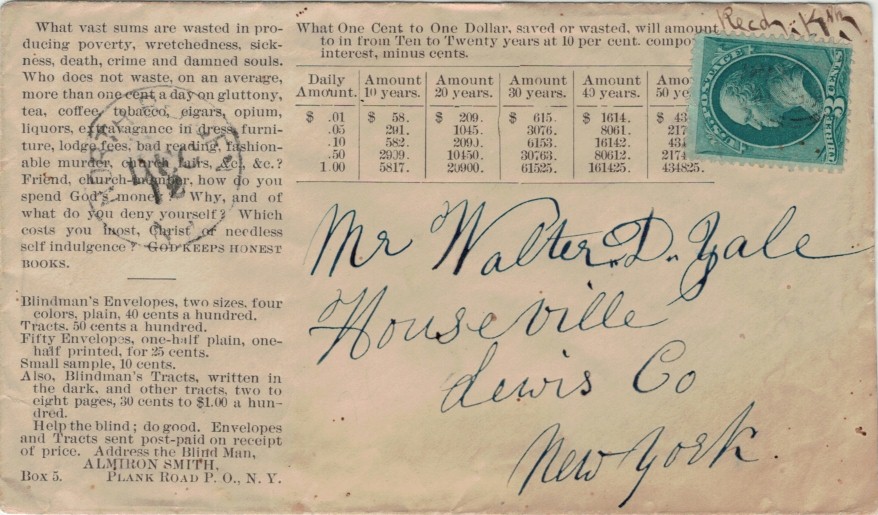 What vast sums are wasted in pro-
ducing poverty, wretchedness, sick-
ness, death, crime and damned souls.
Who does not waste, on an average,
more than one cent a day on gluttony,
tea, coffee, tobacco, cigars, opium,
liquors, extravagance in dress, furni-
ture, lodge fees, bad reading, fashion-
able murder, church fairs, &c., &c.?
Friend, church-member, how do you
spend God's money? Why, and of
what do you deny yourself? Which
costs you most, Christ or needless
self indulgence? GOD KEEPS HONEST
BOOKS.
Blindman's Envelopes, two sizes, four
colors, plain, 40 cents a hundred.
Tracts, 50 cents a hundred.
Fifty Envelopes, one-half plain, one-
half printed, for 25 cents.
Small sample, 10 cents.
Also, Blindman's Tracts, written in
the dark, and other tracts, two to
eight pages, 30 cents to $1.00 a hun-
dred.
Help the blind; do good. Envelopes
and Tracts sent post-paid on receipt
of price. Address the Blind Man,
ALMIRON SMITH,
Box 5. PLANK ROAD P. O., N. Y.
What One Cent to One Dollar, saved or wasted, will amount
to in from Ten to Twenty years at 10 per cent. compo
interest, minus cents.
Daily Amount. Amount 10 years. Amount 20 years. Amount 30 years. Amount 40 years. Amo 50 ye
$ .01 $ 58. $ 209. $ 615. $ 1614. $ 43
.05 291. 1045. 3076. 8061. 217
.10 582. 2090. 6153. 16142. 43
.50 2909. 10450. 30763. 80612. 2174
1.00 5817. 20900. 61525. 161425. 434825.
Recd.
U.S. POSTAGE
3
THREE CENTS
Mr Walter D. Yale
Houseville
Lewis Co
New York